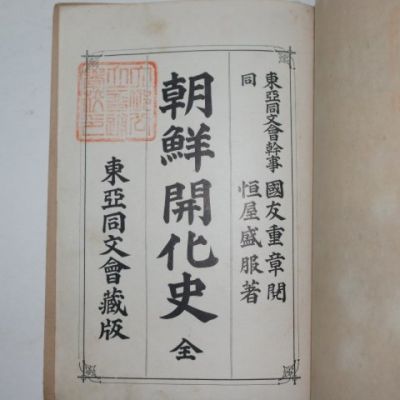 東亞同文會幹事 國友重章閱
同 恒屋盛服著
朝鮮開化史 全
東亞同文會藏版